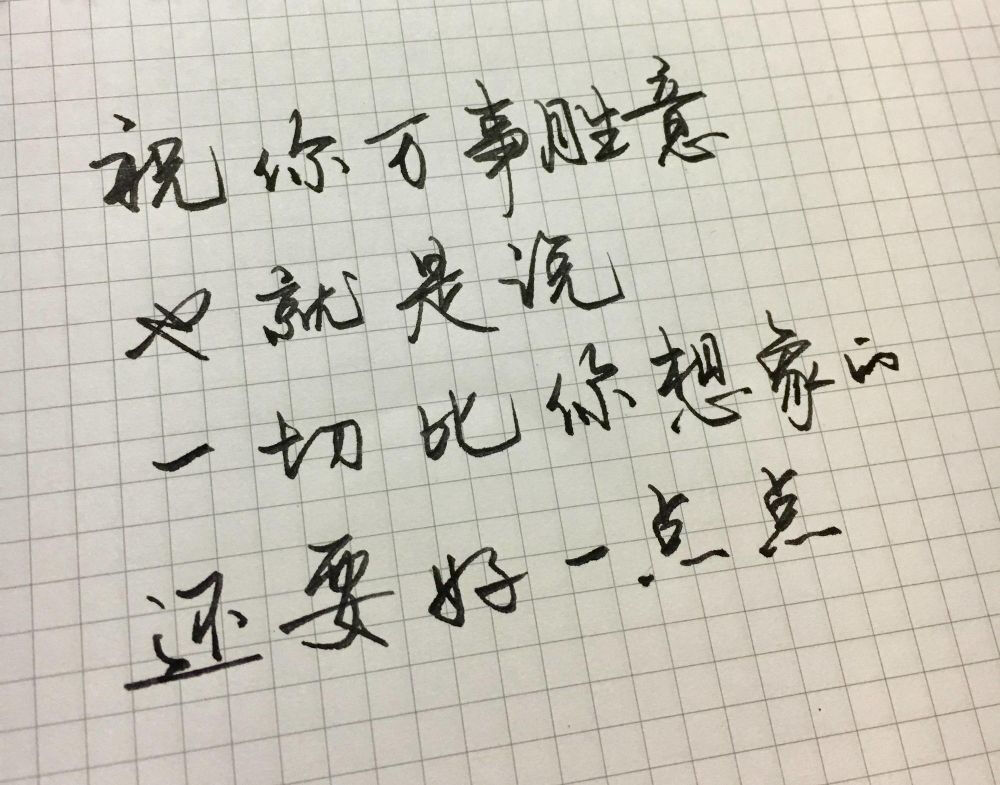 祝你万事胜意
也就是说
一切比你想象的
还要好一点点